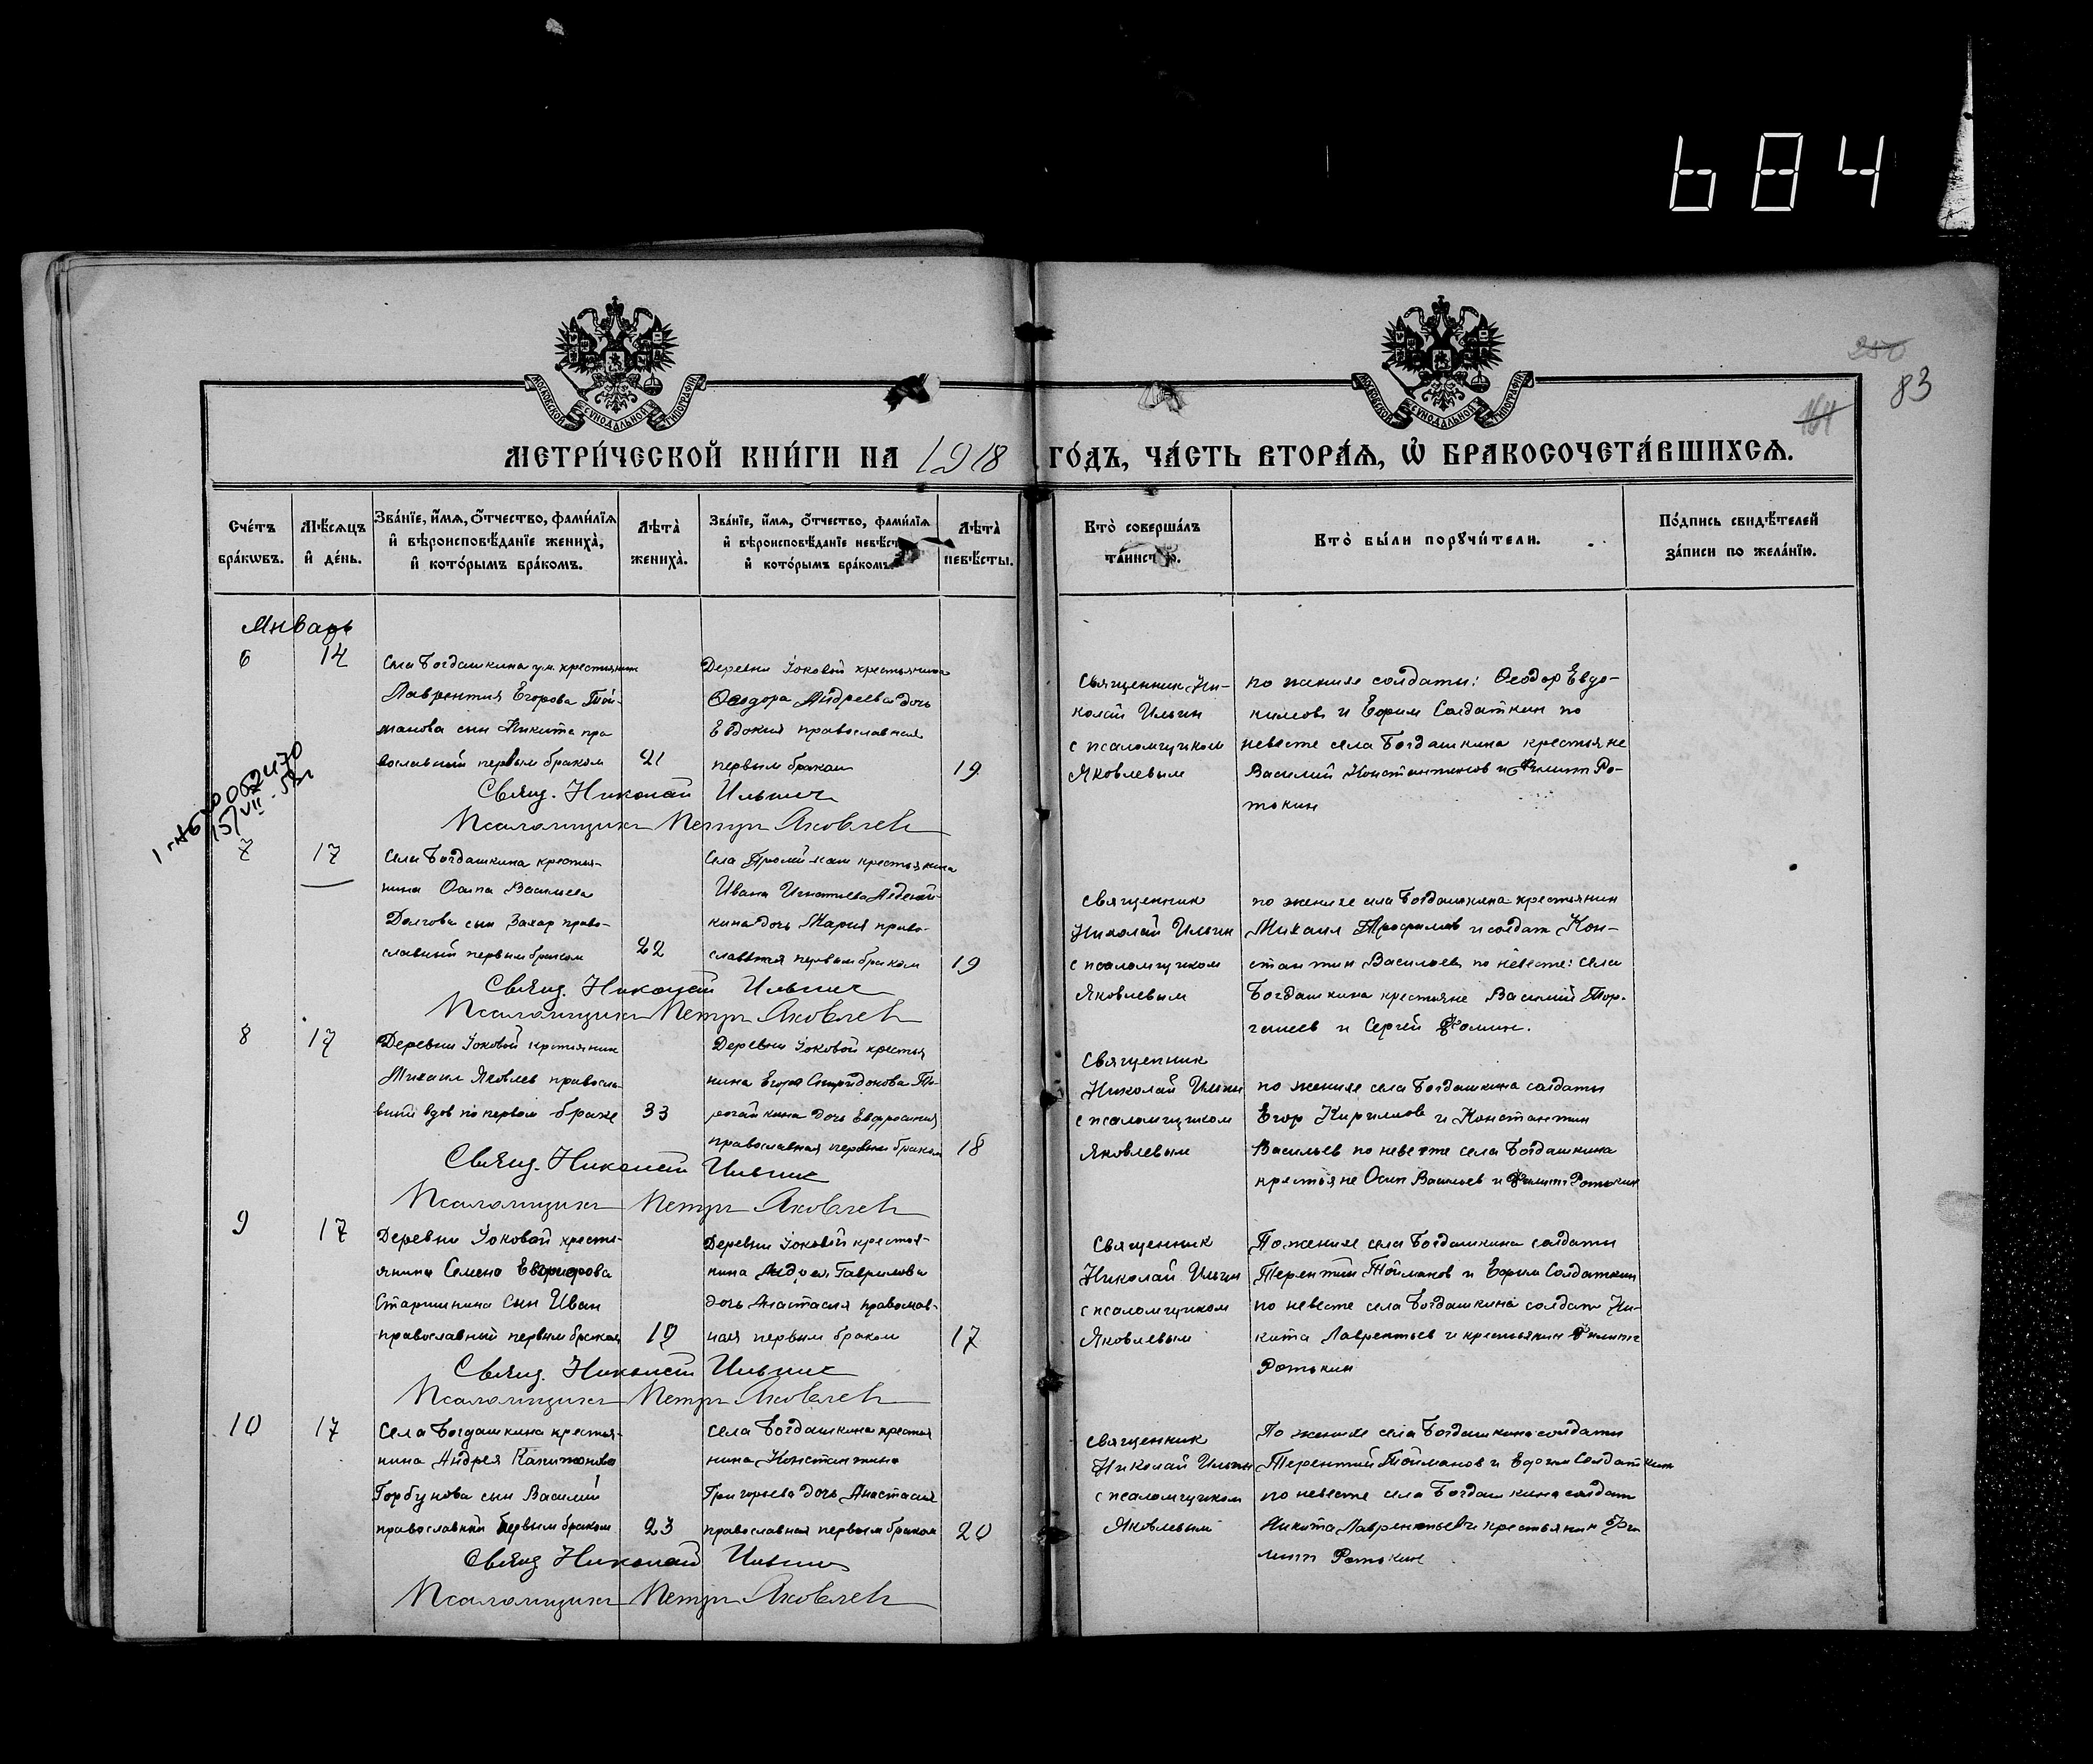 684
МОСКОВСКОЙ СѴНОДАЛЬНОЙ ТИПОГРАФІИ
МОСКОВСКОЙ СѴНОДАЛЬНОЙ ТИПОГРАФІИ
250
83
164
МЕТРИ́ЧЕСКОЙ КНИ́ГИ НА 1918 ГО́ДЪ, ЧА́СТЬ ВТОРА́Я, Ѡ҆ БРАКОСОЧЕТА́ВШИХСѦ.
Сче́тъ бра́кѡвъ.
Мѣ́сѧцъ и҆ де́нь.
Зва́нїе, и҆́мѧ, ѻ҆́тчество, фами́лїѧ
и҆ вѣроисповѣ́данїе жениха̀,
и҆ кото́рымъ бра́комъ.
Лѣта̀ жениха̀.
Зва́нїе, и҆́мѧ, ѻ҆́тчество, фами́лїѧ
и҆ вѣроисповѣ́данїе невѣ́сты
и҆ кото́рымъ бра́комъ.
Лѣта̀ невѣ́сты.
Кто̀ соверша́лъ
та́инство.
Кто̀ бы́ли порꙋчи́тели.
По́дпись свидѣ́телей
за́писи по жела́нїю.
Январь
6
14
Села Богдашкина ум. крестьянин
Лаврентия Егорова Той-
манова сын Никита пра
вославный первым браком
21
Деревни Уоковой крестьянина
Ѳеодора Андреева дочь
Евдокия православная
первым браком
19
Священник Ни-
колай Ильин
с псаломщиком
Яковлевым
по женихе солдаты: Ѳеодор Евдо-
кимов и Ефрим Солдаткин по
невесте села Богдашкина крестьяне
Василий Константинов и Филипп Ро-
токин
Свящ. Николай Ильин
Псаломщик Петр Яковлев
15/VII-53г
7
17
Села Богдашкина крестья-
нина Осипа Васильева
Долгова сын Захар право-
славный первым браком
22
Ивана Игнатьева
кина дочь Мария право-
славная первым браком
19
Священник
Николай Ильин
с псаломщиком
Яковлевым
по женихе села Богдашкина крестьянин
Михаил Трофимов и солдат Кон-
стантин Васильев по невесте: села
Богдашкина крестьяне Василий Тор-
гашев и Сергей Фомин.
Свящ. Николай Ильин
Псаломщик Петр Яковлев
8
17
Деревни Уоковой крстьянин
Михаил Яковлев правосла
вный вдов по первом браке
33
Деревни Уоковой крестья
нина Егора Спиридонова
дочь Евфросиния
православная первым браком
18
Священник
Николай Ильин
с псаломщиком
Яковлевым
по женихе села Богдашкина солдаты
Егор Кириллов и Константин
Васильев по невесте села Богдашкина
крестьяне Осип Васильев и Филипп Ротокин
Свящ. Николай Ильин
Псаломщик Петр Яковлев
9
17
Деревни Уоковой кресть-
янина Семена
Старшинина сын Иван
православный первым браком
19
Деревни Уоковой крестья-
нина Андрея Гаврилова
дочь Анастасия православ-
ная первым браком
17
Священник
Николай Ильин
с псаломщиком
Яковлевым
По женихе села Богдашкина солдаты
Терентий Тойманов и Ефрим Солдаткин
по невесте села Богдашкина солдат Ни-
кита Лаврентьев и крестьянин Филипп
Ротокин
Свящ. Николай Ильин
Псаломщик Петр Яковлев
10
17
Села Богдашкина крестья-
нина Андрея Капитонова
Горбунова сын Василий
православный первым браком
23
Села Богдашкина крестья
нина Константина
Григорьева дочь Анастасия
православная первым браком
20
Священник
Николай Ильин
с псаломщиком
Яковлевым
По женихе села Богдашкина солдаты
Терентий Тойманов и Ефрим Солдаткин
по невесте села Богдашкина солдат
Никита Лаврентьев и крестьянин Фи
липп Ротокин
Свящ. Николай Ильин
Псаломщик Петр Яковлев